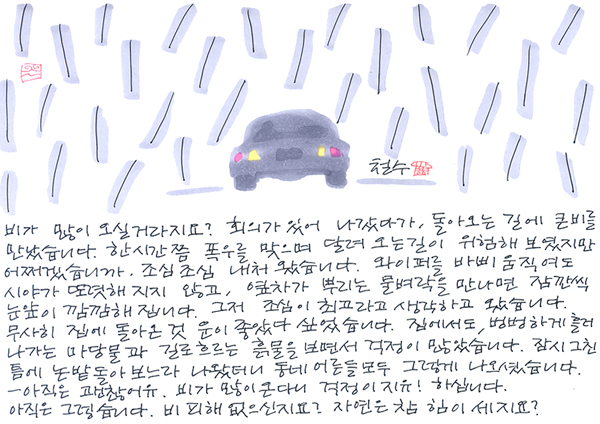 철수
비가 많이 오실거라지요? 회의가 있어 나갔다가, 돌아오는 길에 큰비를
만났습니다. 한시간쯤 폭우를 맞으며 달려 오는길이 위험해 보였지만
어쩌겠습니까. 조심조심 내쳐 왔습니다. 와이퍼를 바삐 움직여도
시야가 또렷해 지지 않고, 옆차가 뿌리는 물벼락을 만나면 잠깐씩
눈앞이 깜깜해집니다. 그저 조심이 최고라고 생각하고 왔습니다.
무사히 집에 돌아온 것 운이 좋았다 싶었습니다. 집에서도, 벙벙하게 흘러
나가는 마당물과 길로흐르는 흙물을 보면서 걱정이 많았습니다. 잠시 그친
틈에 논밭 돌아 보느라 나왔더니 동네 어른들 모두 그렇게 나오셨습니다.
—아직은 괜찮어유. 비가 많이 온다니 걱정이지유! 하십니다.
아직은 그렇습니다. 비 피해 없으신지요? 자연은 참 힘이 세지요?